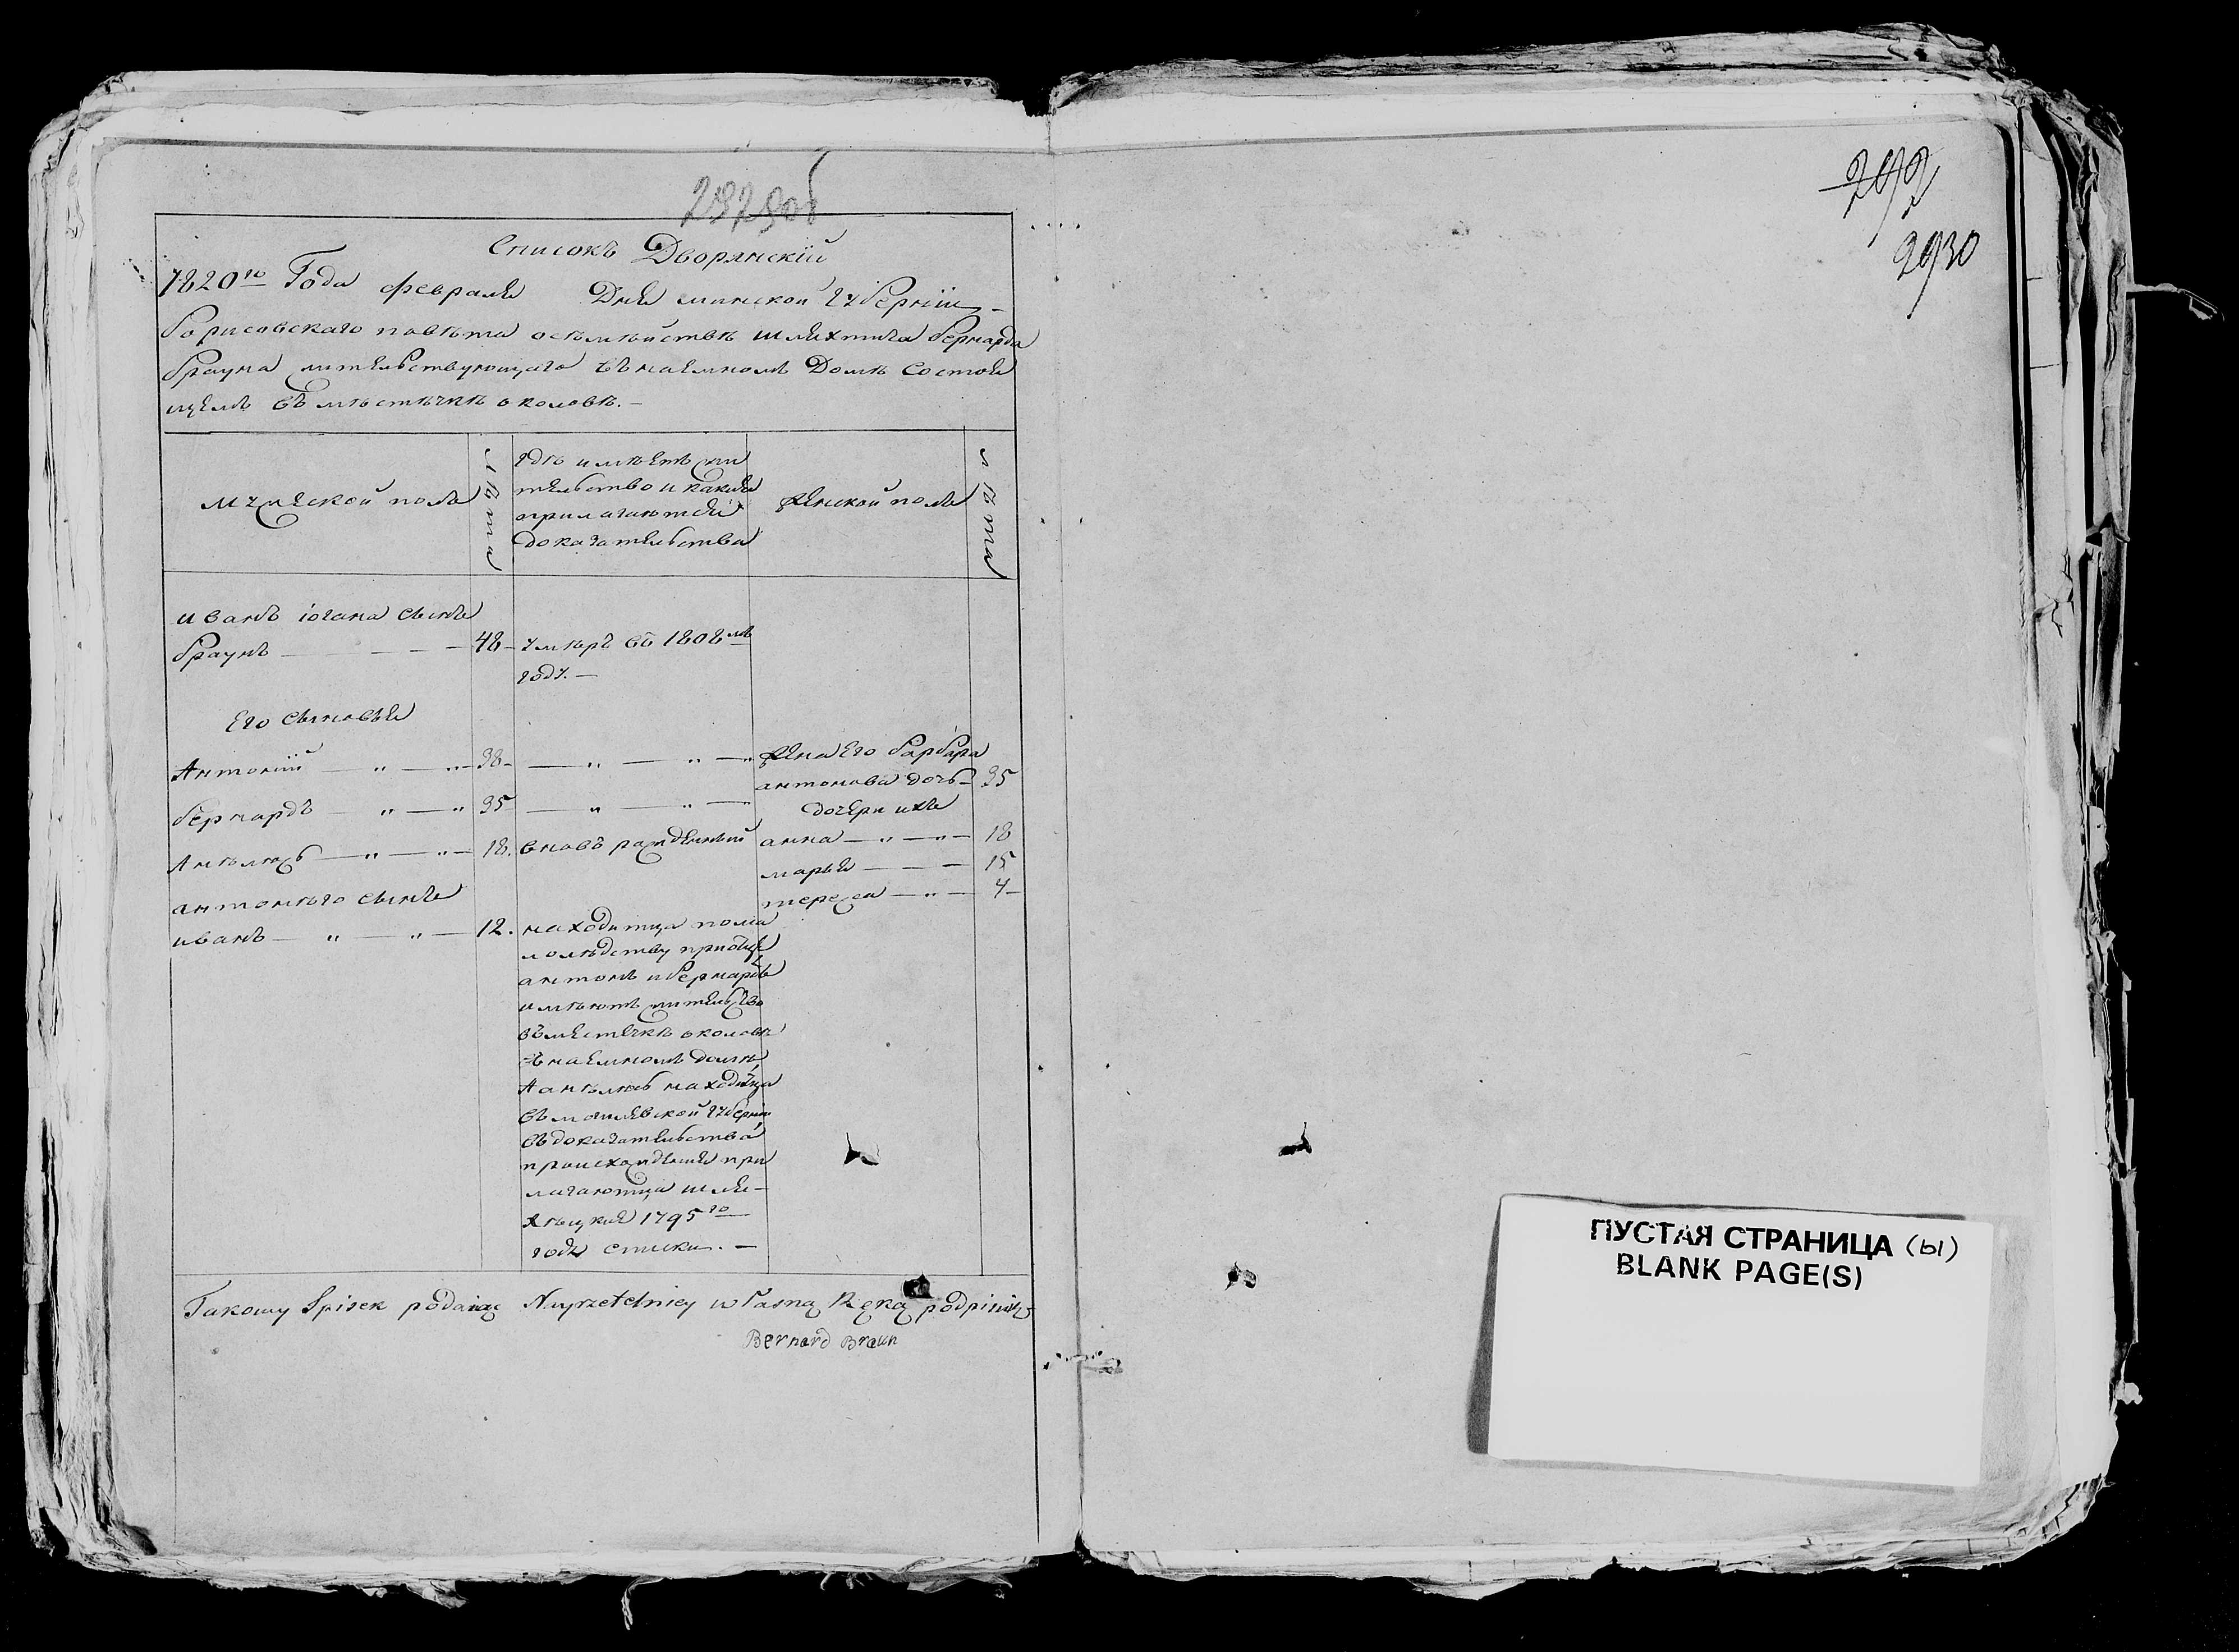 292 об
Списокъ Дворянскій
1820го Года февраля Дня минской губерніи
борисовскаго повѣта о сѣмѣйствѣ шляхтича бернарда
брауна жительствующаго въ наемномъ Домѣ Состоя
щемъ въ мѣстѣчкѣ околовѣ.—
мужеской полъ
лѣта
гдѣ имѣетъ жи
тельство и какия
прилагаются
доказательства
женской полъ
лѣта
иванъ іогана сынъ
браунъ — 48 — умѣръ въ 1808мъ
году.—
Его сыновья
Антоній — „ — „ — 38 — „ — „ — жена Его барбара
антонова дочь — 35
бернардъ — „ — „ 35 — „ — „ —
дочери ихъ
Анѣлюсъ — „ — „ — 18. вновь рожденный анна — „ — „ — 18
марья — — 15
антонѣго сынъ
тереса — „ — 4 —
иванъ — „ — „ — 12. находитца пома
лолѣдству при отце
антонъ и бернардъ
имѣютъ жительство
въ местечкѣ околовѣ
въ наемномъ домѣ
А анѣлюсъ находитца
въ могилевской губерніи
въ доказательства
происхождения при
лагаютца шля—
хѣцкия 1795го
года списки.—
Takowy Spisek podaiąc Nayrzetelniey własną Ręką podpisuię
Bernard Braun
292
2930
ПУСТАЯ СТРАНИЦА (Ы)
BLANK PAGE(S)